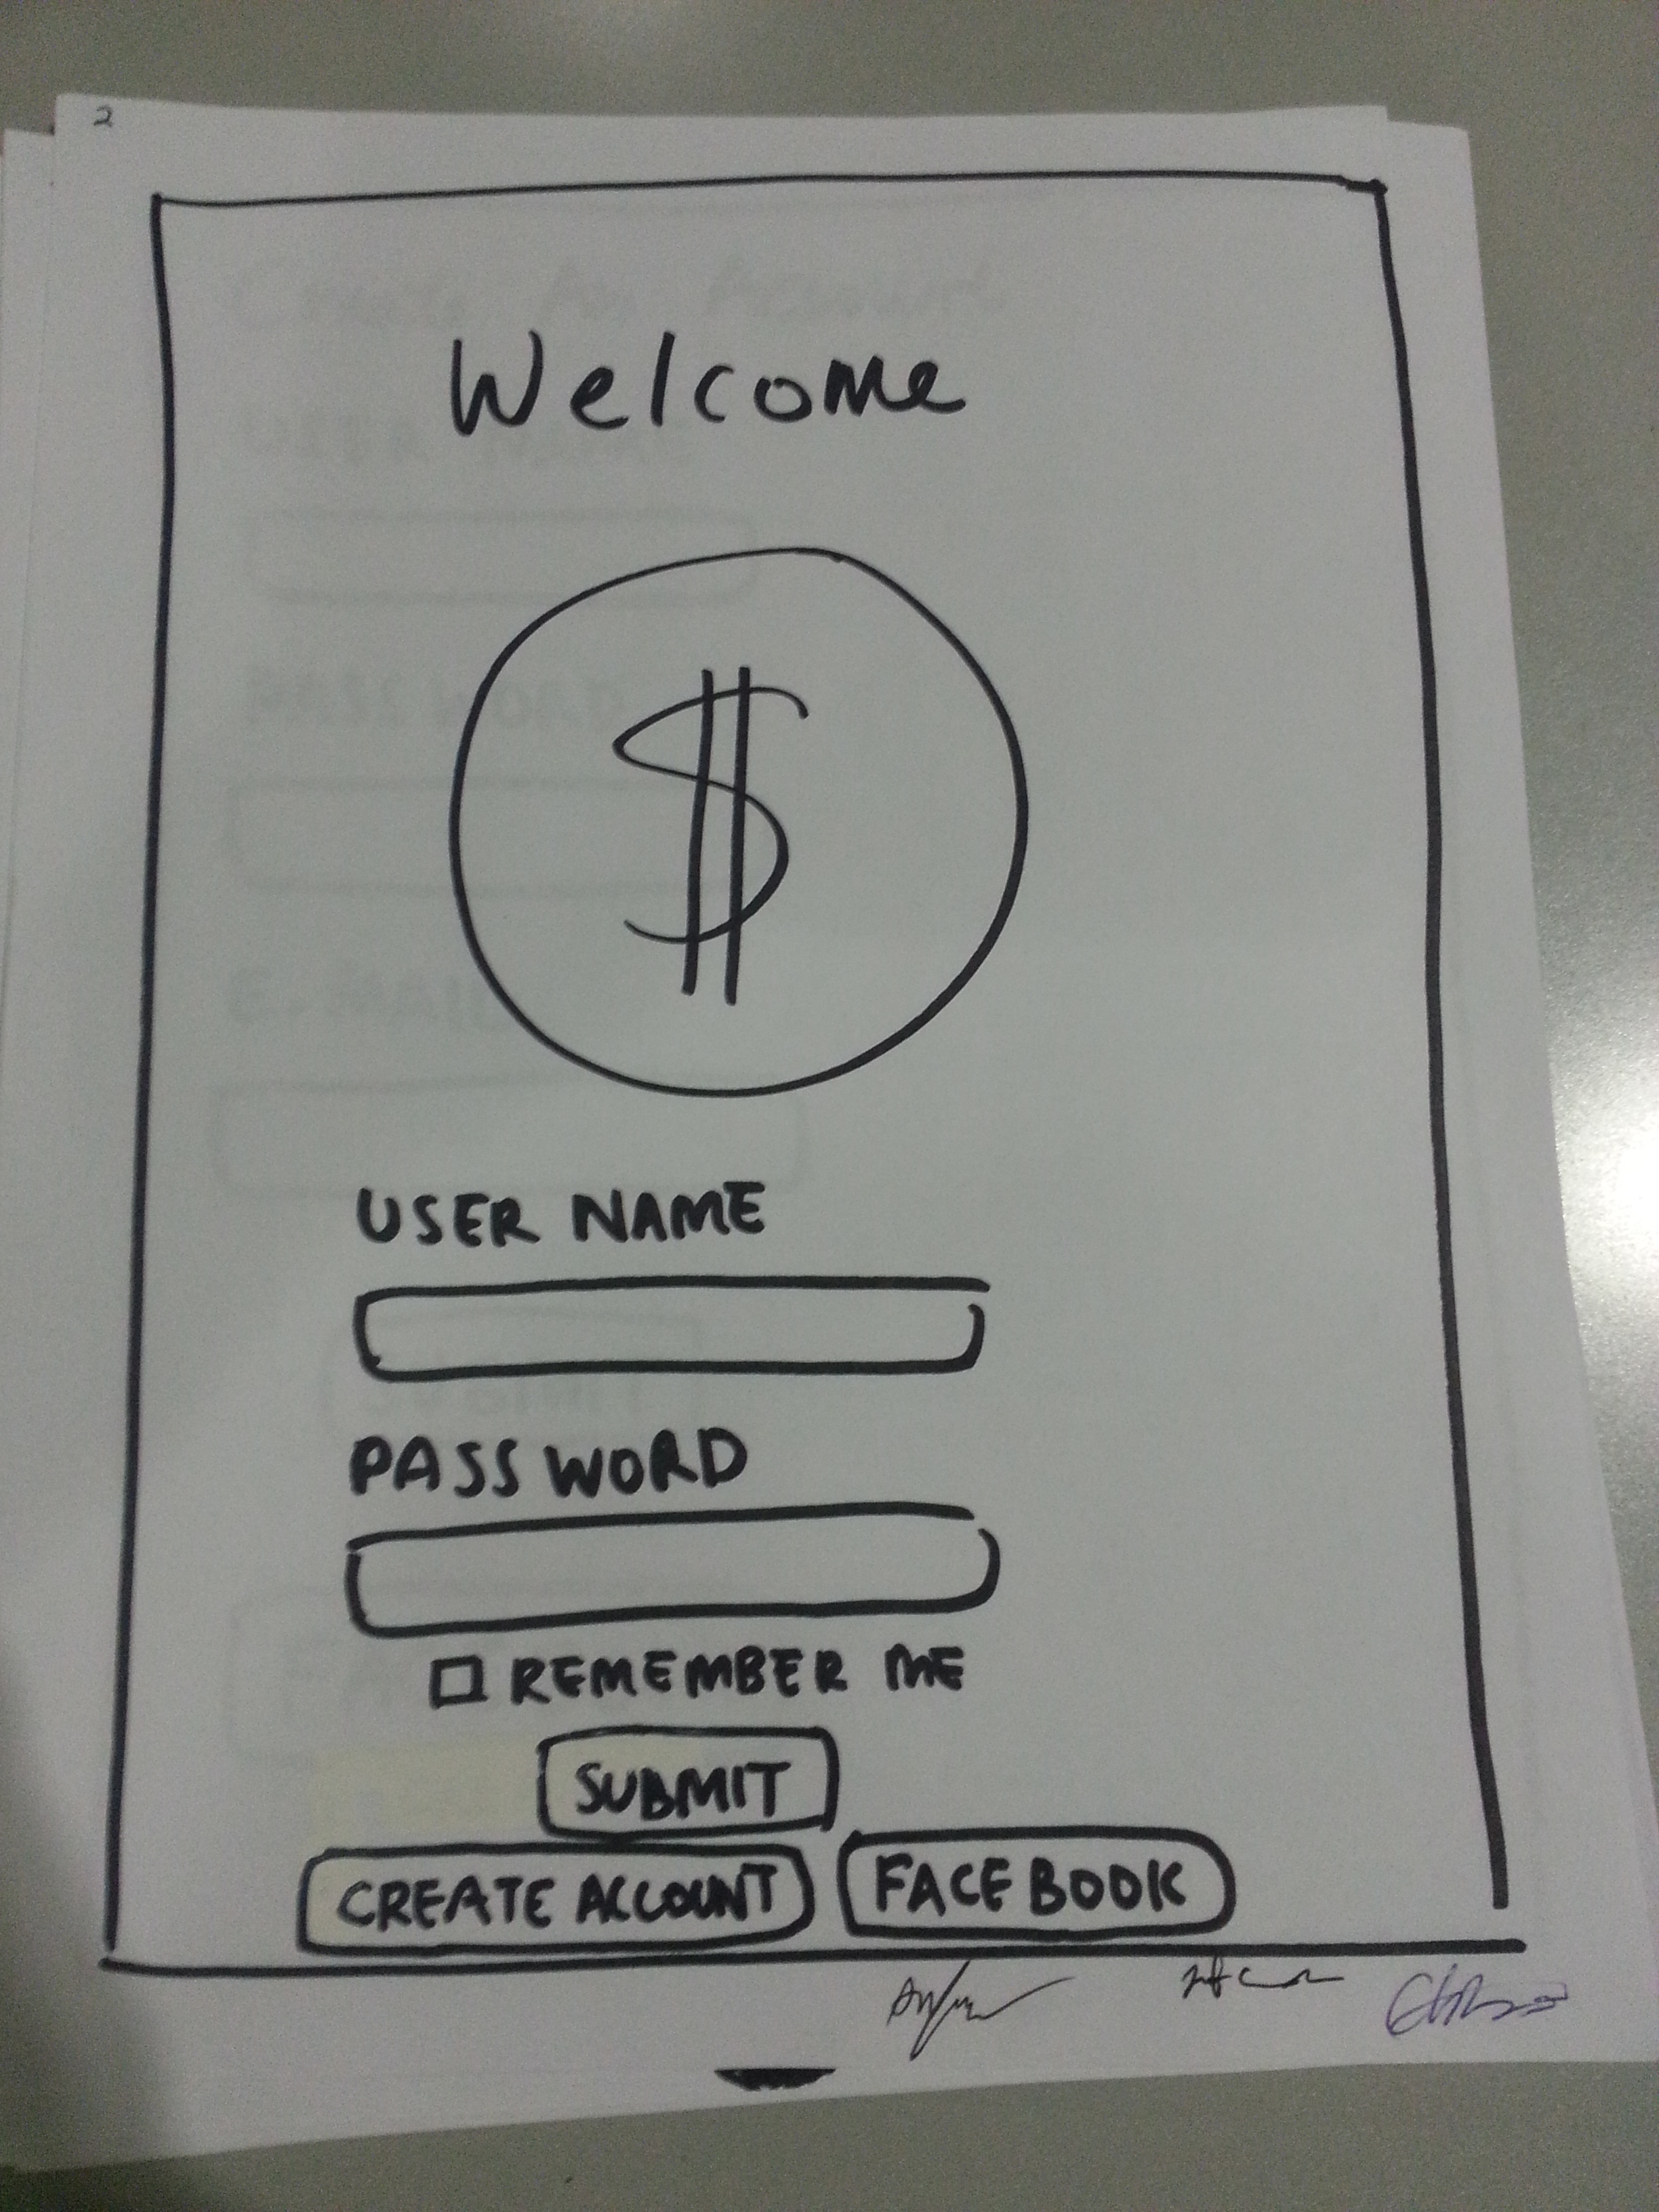 2
Welcome
$
USER NAME
PASSWORD
REMEMBER ME
SUBMIT
CREATE ACCOUNT
FACEBOOK